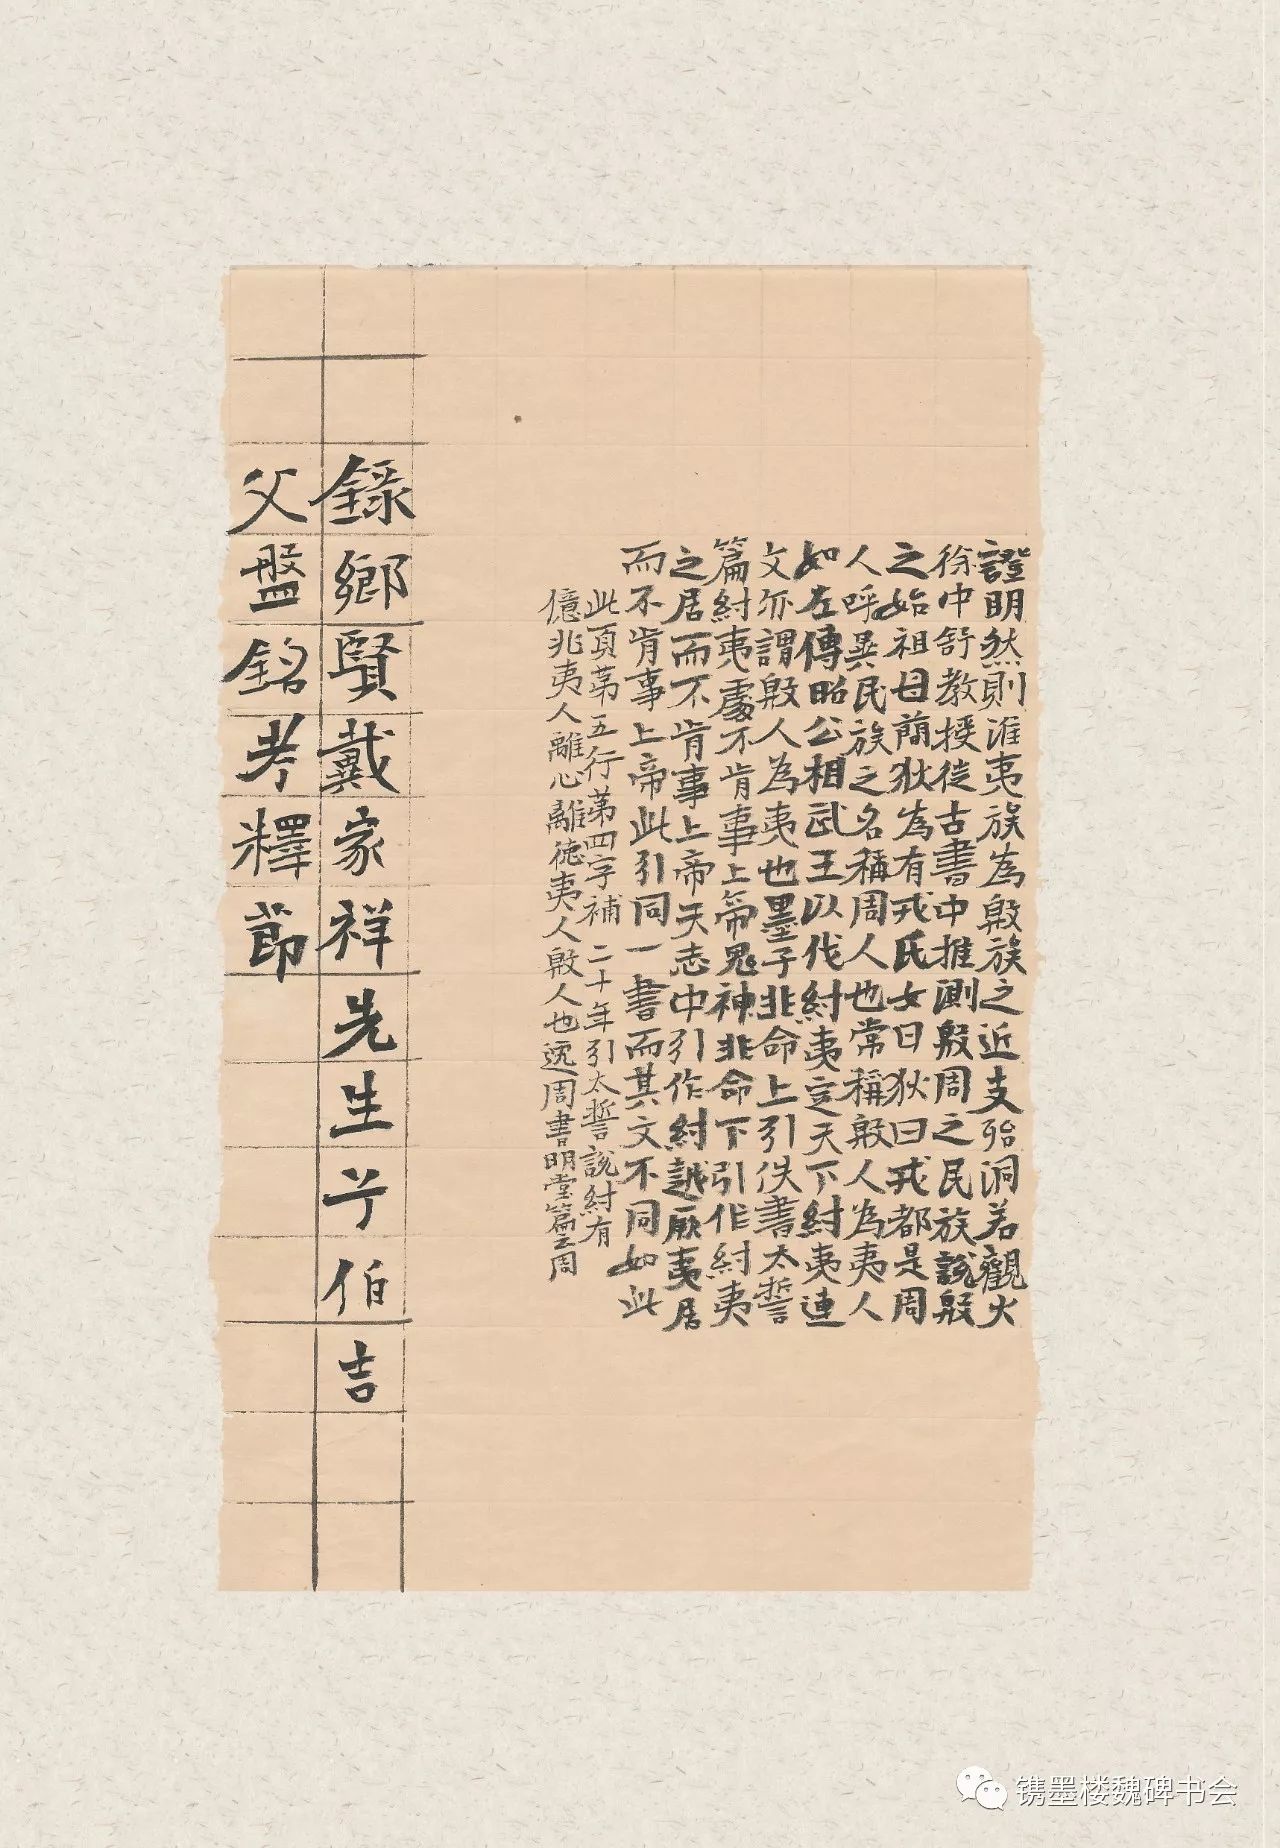 證明然則淮夷族為殷族之近支殆洞若觀火
徐中舒教授從古書中推測殷周之民族說殷
之始祖母簡狄為有戎氏女曰狄曰戎都是周
人呼異民族之名稱周人也常稱殷人為夷人
如左傳昭公相武王以伐紂夷定天下紂夷連
文亦謂殷人為夷也墨子非命上引佚書太誓
篇紂夷處不肯事上帝鬼神非命下引作紂夷
之居而不肯事上帝天志中引作紂越厥夷居
而不肯事上帝此引同一書而其文不同如此
此頁第五行第四字補 二十年引太誓說紂有
億兆夷人離心離德夷人殷人也逸周書明堂篇云周
錄鄉賢戴家祥先生兮伯吉
父盤銘考釋節
镌墨楼魏碑书会